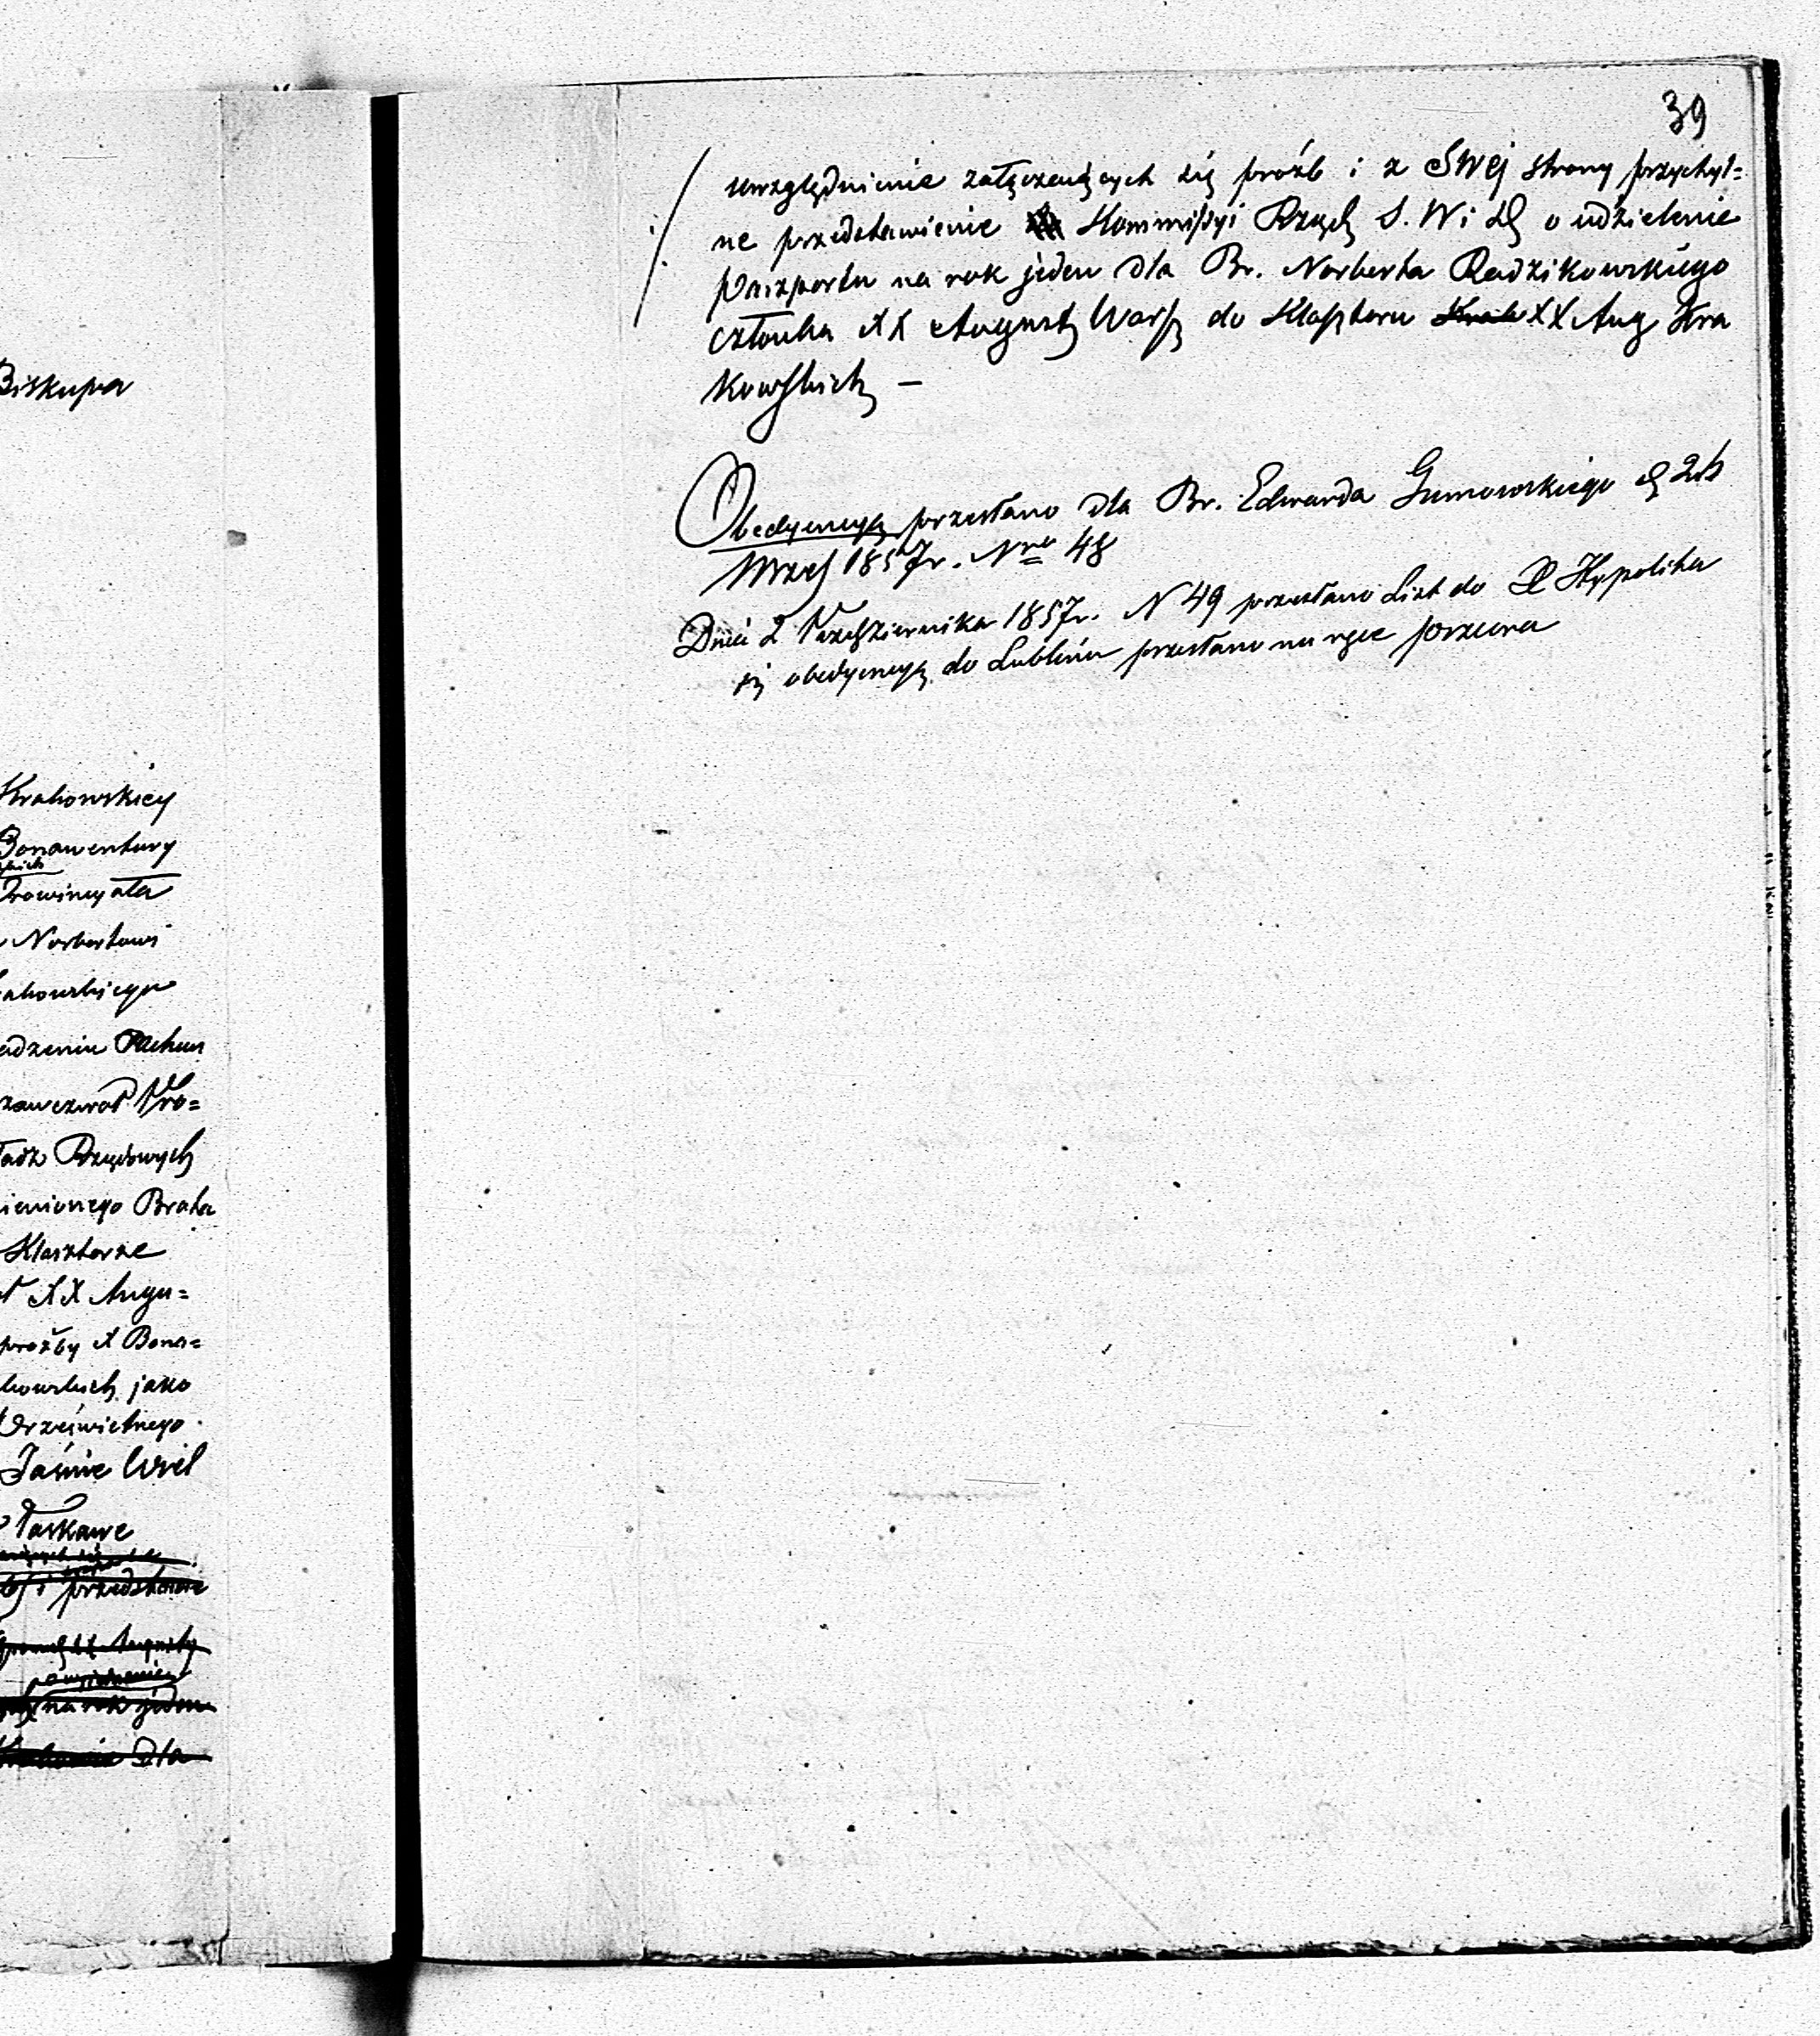 Biskupa
Krakowskiey
Bonawentury
Prowincyała
Norbertowi
Rządowych
Brata
Klasztorze
XX Augu=
prożby X Bona=
jako
Prześwietnego
Jaśnie Wiel
Łaskawe
i przedstawie
na rok jeden
Dla
39
uwzględnienie załączających się próźb i z Swej strony przychyl=
ne przedstawienie Kommissyi Rząd S. W i D o udzielenie
paszportu na rok jeden dla Br. Norberta Radzikowskiego
członka XX August Wars do Klasztoru Krak XX Aug Kra
kowskich —
Obedyencyą przesłano dla Br. Edwarda Gumowskiego d 24
Wrześ 1857r. Nro 48
Dnia 2 Października 1857r. N 49 przesłano List do X Hypolita
obedyencyą do Lublina przesłano na ręce przeora